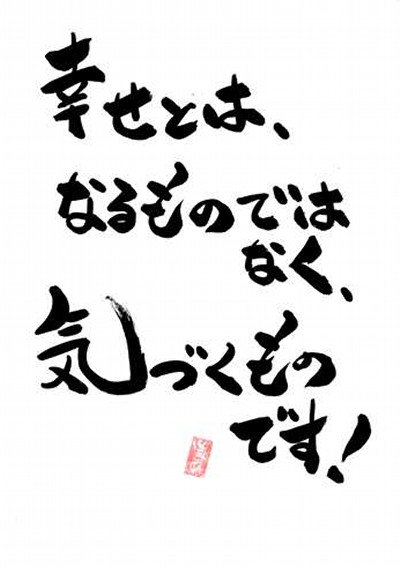 幸せとは、
なるものでは
なく、
気づくもの
です!